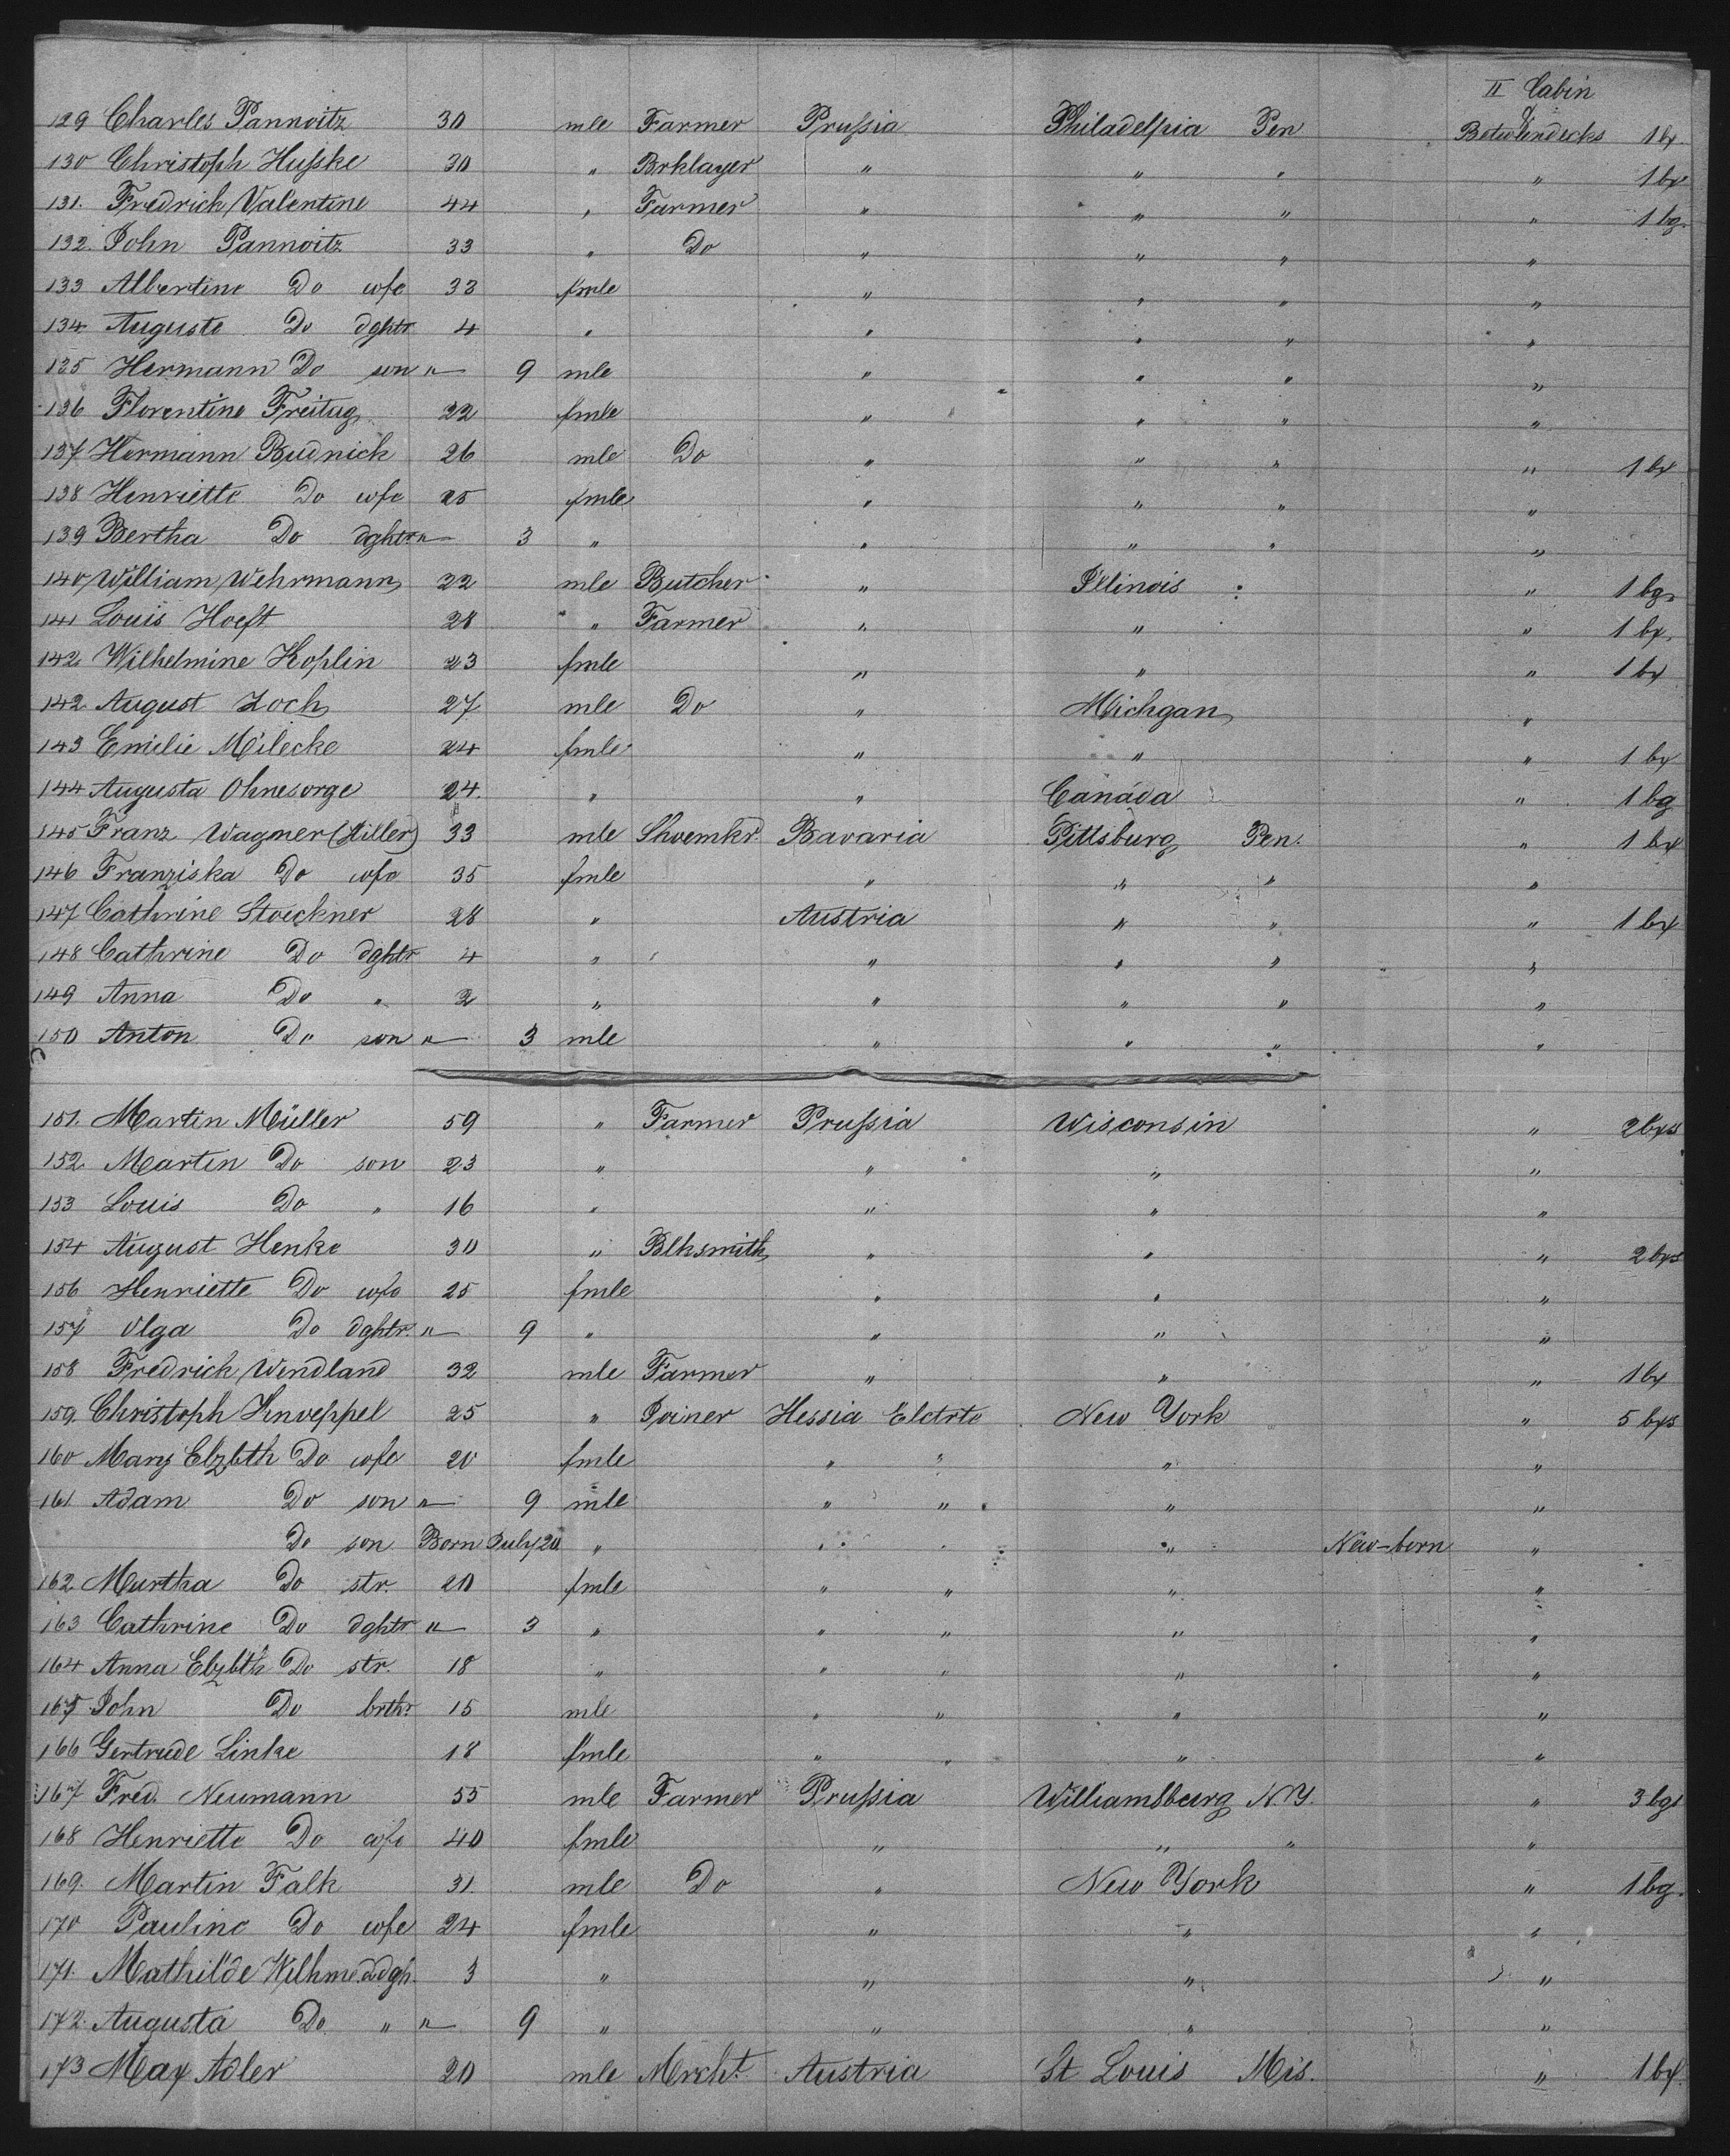 II Cabin
&
129 Charles Pannwitz 30 mle Farmer Prußia Philadelpia Pen Betwendecks 1 bx.
130 Christoph Hußke 30 " Brklayer " " " " 1 bx
131. Fredrich Valentine 44 " Farmer " " " " 1 bg.
132. John Pannwitz 33 " Do " " " "
133 Albertine Do wfe 33 fmle " " " "
134 Auguste Do dghtr 4 " " " " "
135 Hermann Do son " — 9 mle " " " "
136 Florentine Freitag 22 fmle " " " "
137 Hermann Budnick 26 mle Do " " " " 1 bx
138 Henriette Do wfe 25 fmle " " " "
139 Bertha Do dghtr " — 3 " " " " "
140 William Wehrmann 22 mle Butcher " Illinois : " 1 bg.
141 Louis Hoeft 28 " Farmer " " " 1 bx.
142 Wilhelmine Koplin 23 fmle " " " 1 bx
142 August Zoch 27 mle Do " Michgan "
143 Emilie Milecke 24 fmle " " " 1 bx
144 Augusta Ohnesorge 24. " " Canada " 1 bg
145 Franz Wagner (Hiller) 33 mle Shoemkr. Bavaria Pittsburg Pen. " 1 bx
146 Franziska Do wfe 35 fmle " " " "
147 Cathrine Stoeckner 28 " Austria " " " 1 bx
148 Cathrine Do dghtr 4 " " " " "
149 Anna Do " 2 " " " " "
150 Anton Do son " — 3 mle " " " "
151. Martin Müller 59 " Farmer Prußia Wisconsin " 2 bxs
152. Martin Do son 23 " " " "
153 Louis Do " 16 " " " "
154 August Henke 30 " Blksmith " " " 2 bxs
156 Henriette Do wfe 25 fmle " " "
157 Olga Do dghtr. " — 9 " " " "
158 Fredrich Wendland 32 mle Farmer " " " 1 bx
159. Christoph Knoeppel 25 " Joiner Hessia Elctrte New York " 5 bxs
160 Mary Elzbth Do wfe 20 fmle " " " "
161. Adam Do son " — 9 mle " " " "
Do son Born July 20 " " " " New-born "
162 Martha Do str. 20 fmle " " " "
163 Cathrine Do dghtr " — 3 " " " " "
164 Anna Elzbth Do str. 18 " " " " "
165 John Do brthr 15 mle " " " "
166 Gertrude Linke 18 fmle " " " "
167 Fred. Neumann 55 mle Farmer Prußia Williamsburg N.Y. " 3 bgs
168 Henriette Do wfe 40 fmle " " " "
169. Martin Falk 31. mle Do " New York " 1 bg.
170 Pauline Do wfe 24 fmle " " "
171. Mathilde Wilhme d dgh. 3 " " " "
172. Augusta Do " " — 9 " " " "
173 Max Adler 20 mle Mrcht. Austria St Louis Mis. " 1 bx.